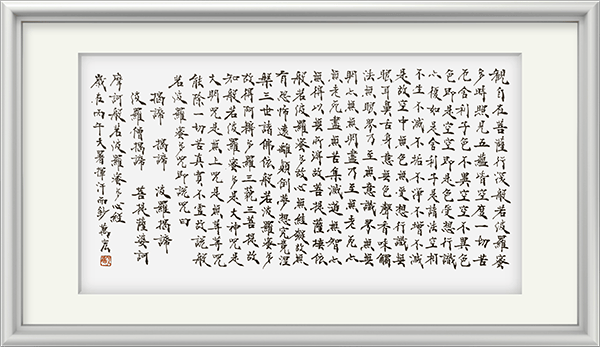 觀自在菩薩行深般若波羅蜜
多時照見五蘊皆空度一切苦
厄舍利子色不異空空不異色
色即是空空即是色受想行識
亦復如是舍利子是諸法空相
不生不滅不垢不淨不增不減
是故空中無色無受想行識無
眼耳鼻舌身意無色聲香味觸
法無眼界乃至無意識界無無
明亦無無明盡乃至無老死亦
無老死盡無苦集滅道無智亦
無得以無所得故菩提薩埵依
般若波羅蜜多故心無罣礙故無
有恐怖遠離顛倒夢想究竟涅
槃三世諸佛依般若波羅蜜多
故得阿耨多羅三藐三菩提故
知般若波羅蜜多是大神咒是
大明咒是無上咒是無等等咒
能除一切苦真實不虛故說般
若波羅蜜多咒即說咒曰
揭諦 揭諦 波羅揭諦
波羅僧揭諦 菩提薩婆訶
摩訶般若波羅蜜多心經
歲在丙午大暑揮汗而鈔